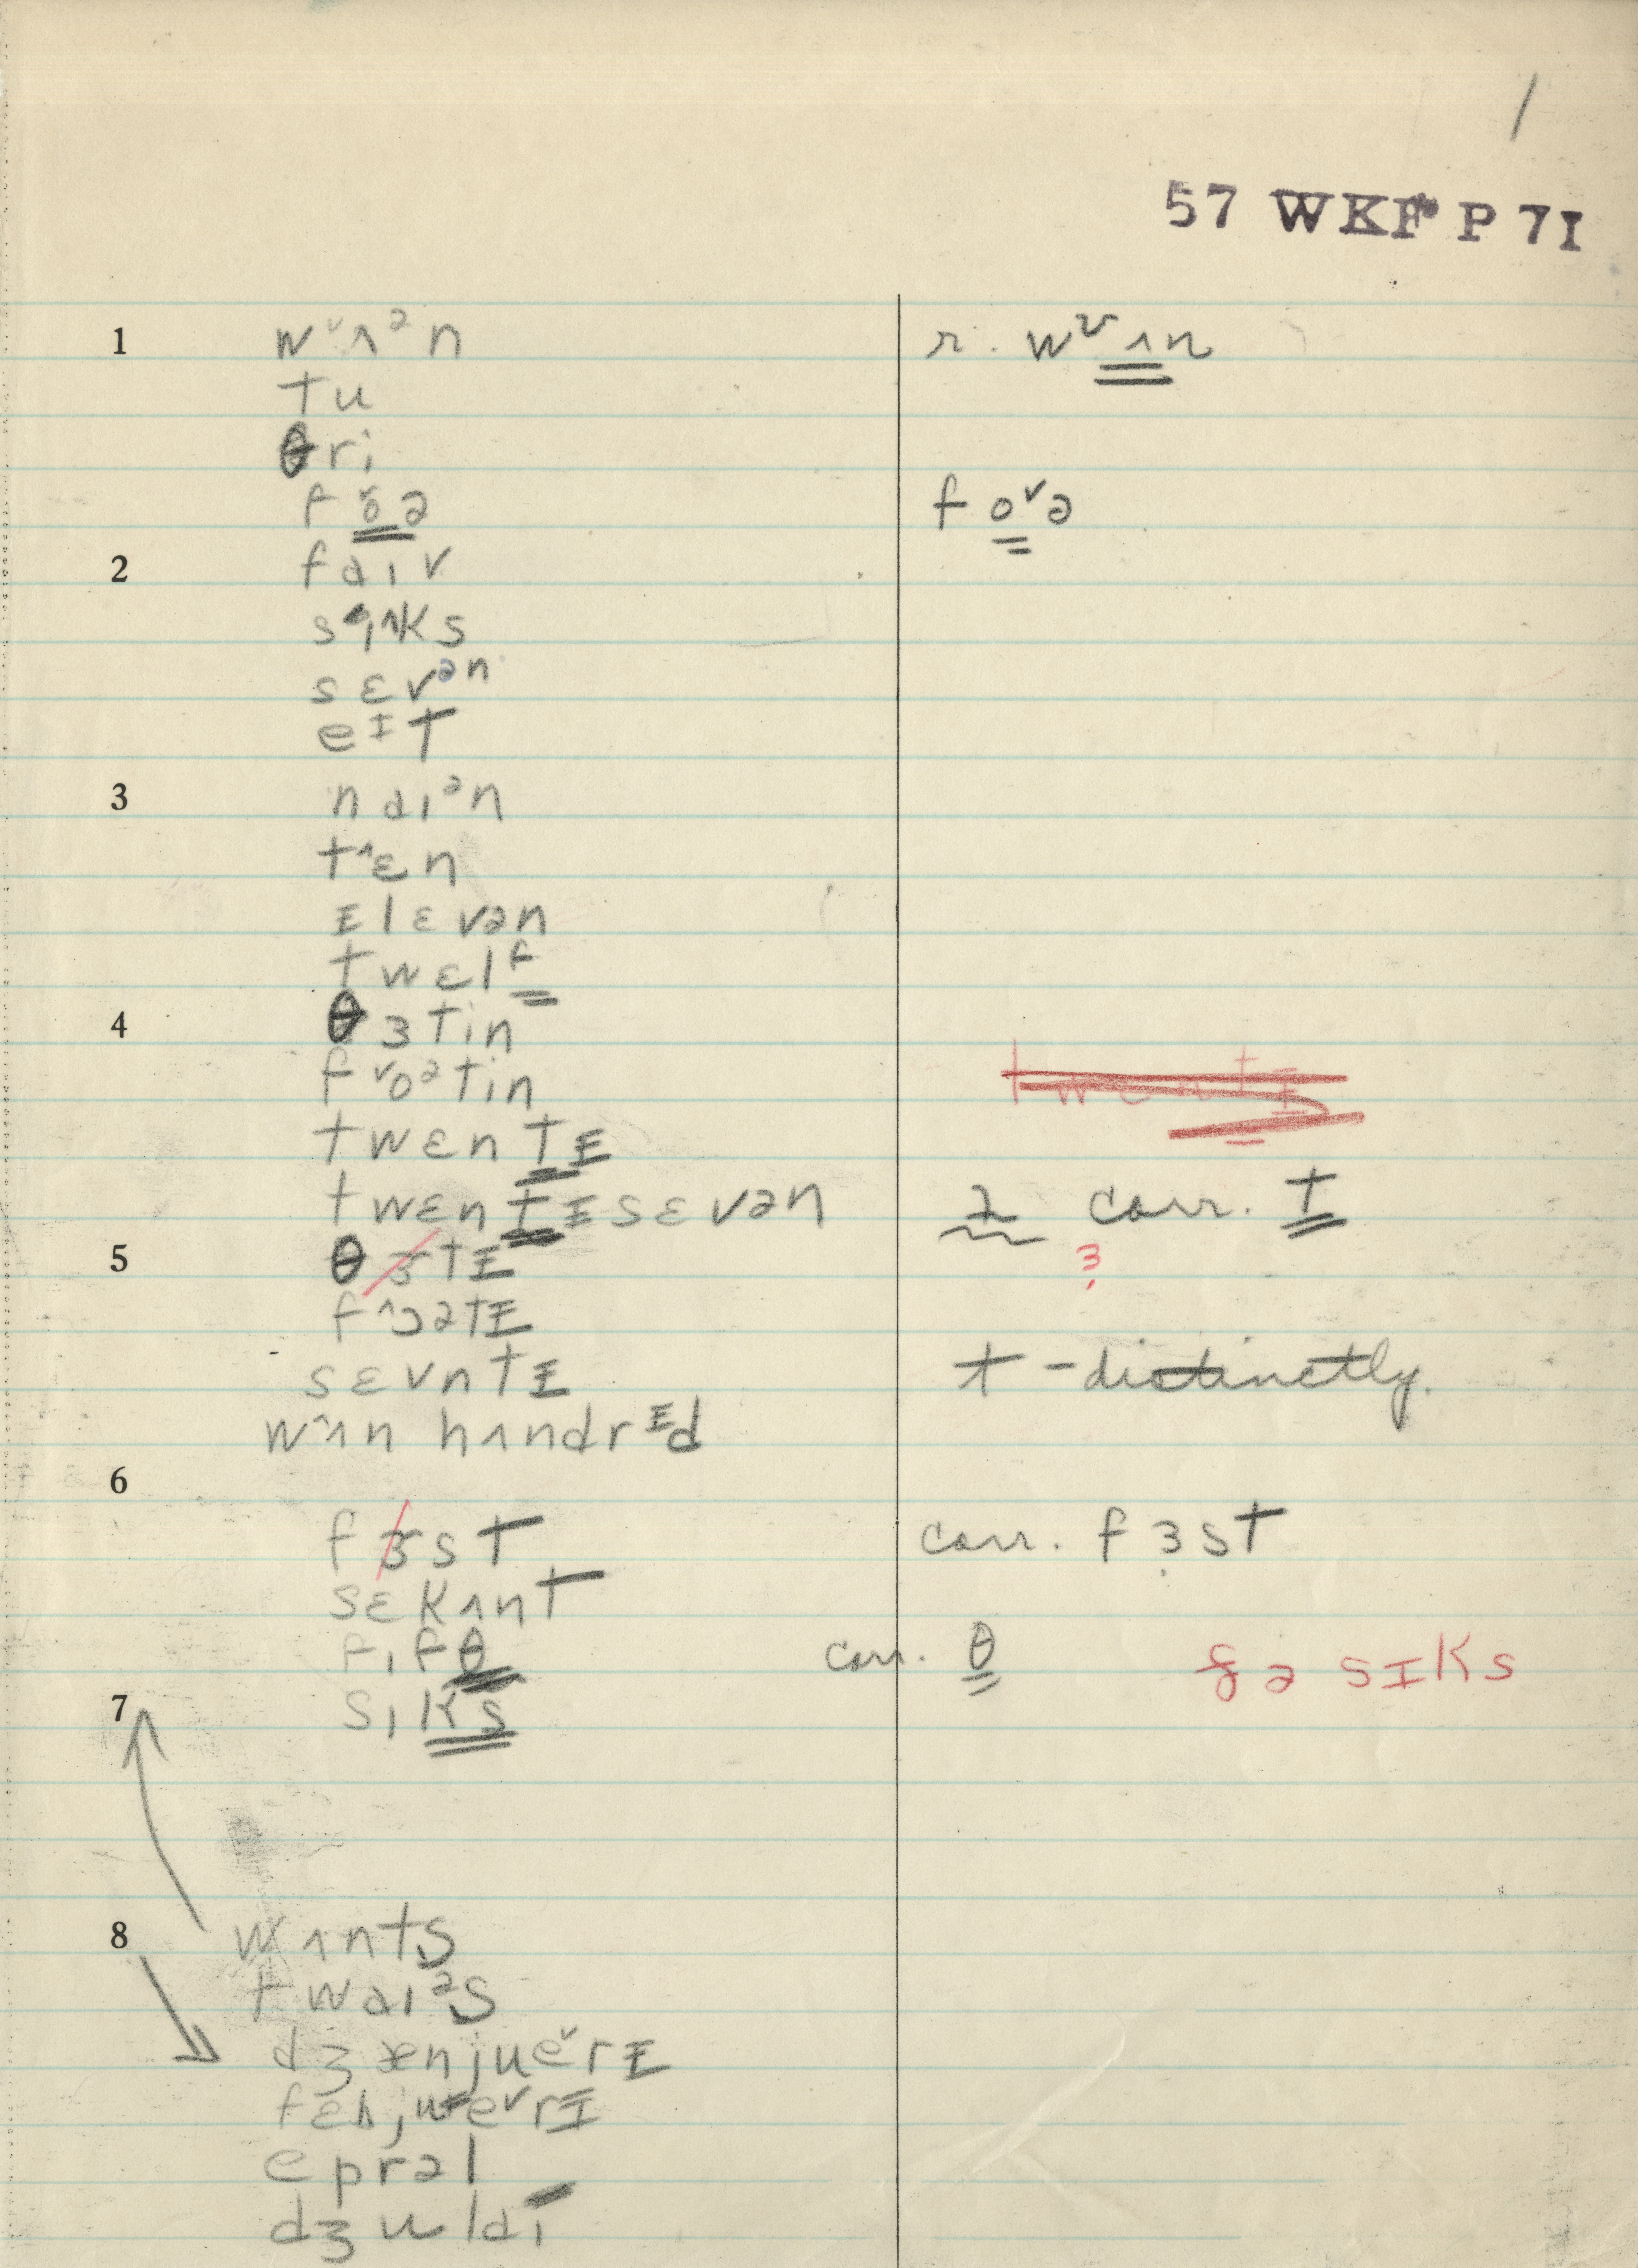 1
57 WKF P 7I
1 wᵛʌᵊn r. wᵛʌn
tu
θri
f o˅ə f o˅ə
2 faɪv
sɛvᵊn
eᴵt
3 naɪᵊn
t^ɛn
ɪlɛvən
twɛlf
4 θɜtin
f˅oᵊtin
twɛntɪ
twɛntɪsɛvən 2 corr. t
5 θɜtɪ ɜ
f^ɔətɪ
sɛvntɪ t - distinctly.
w^ʌn hʌndrᴵd
6
fɜst corr. fɜst
sɛkʌnt
fɪfθ corr. θ
7 sɪks ðə sɪks
8 wʌnts
twaɪᵊs
dʒænjue˅rɪ
fɛbjue˅rɪ
eprəl
dʒulaɪ